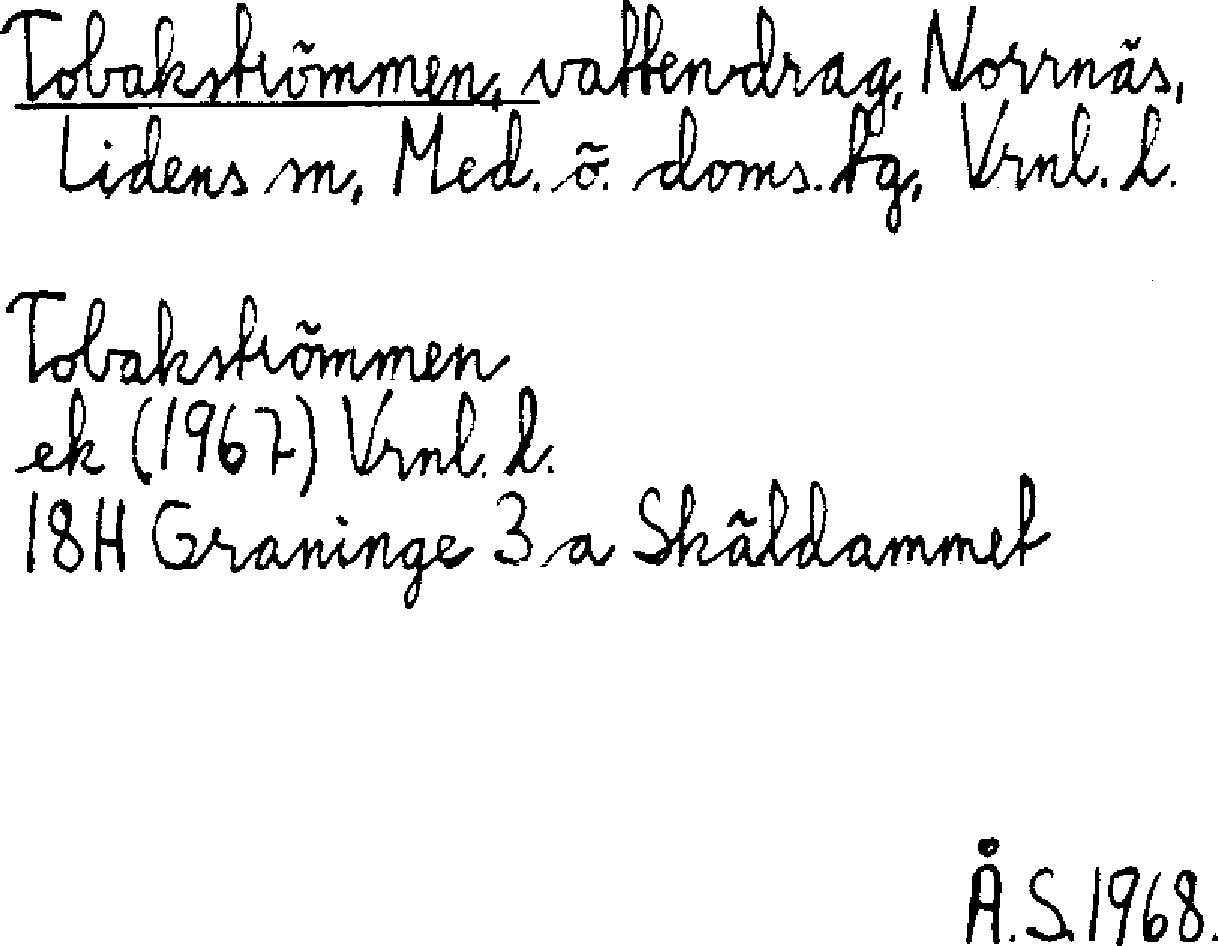 Tobakströmmen, vattendrag, Norrnäs,
Lidens sn, Med. ö. doms.tg, Vrnl. l.
Tobakströmmen
ek (1967) Vrnl. l.
18H Graninge 3 a Skäldammet
Å.S. 1968.